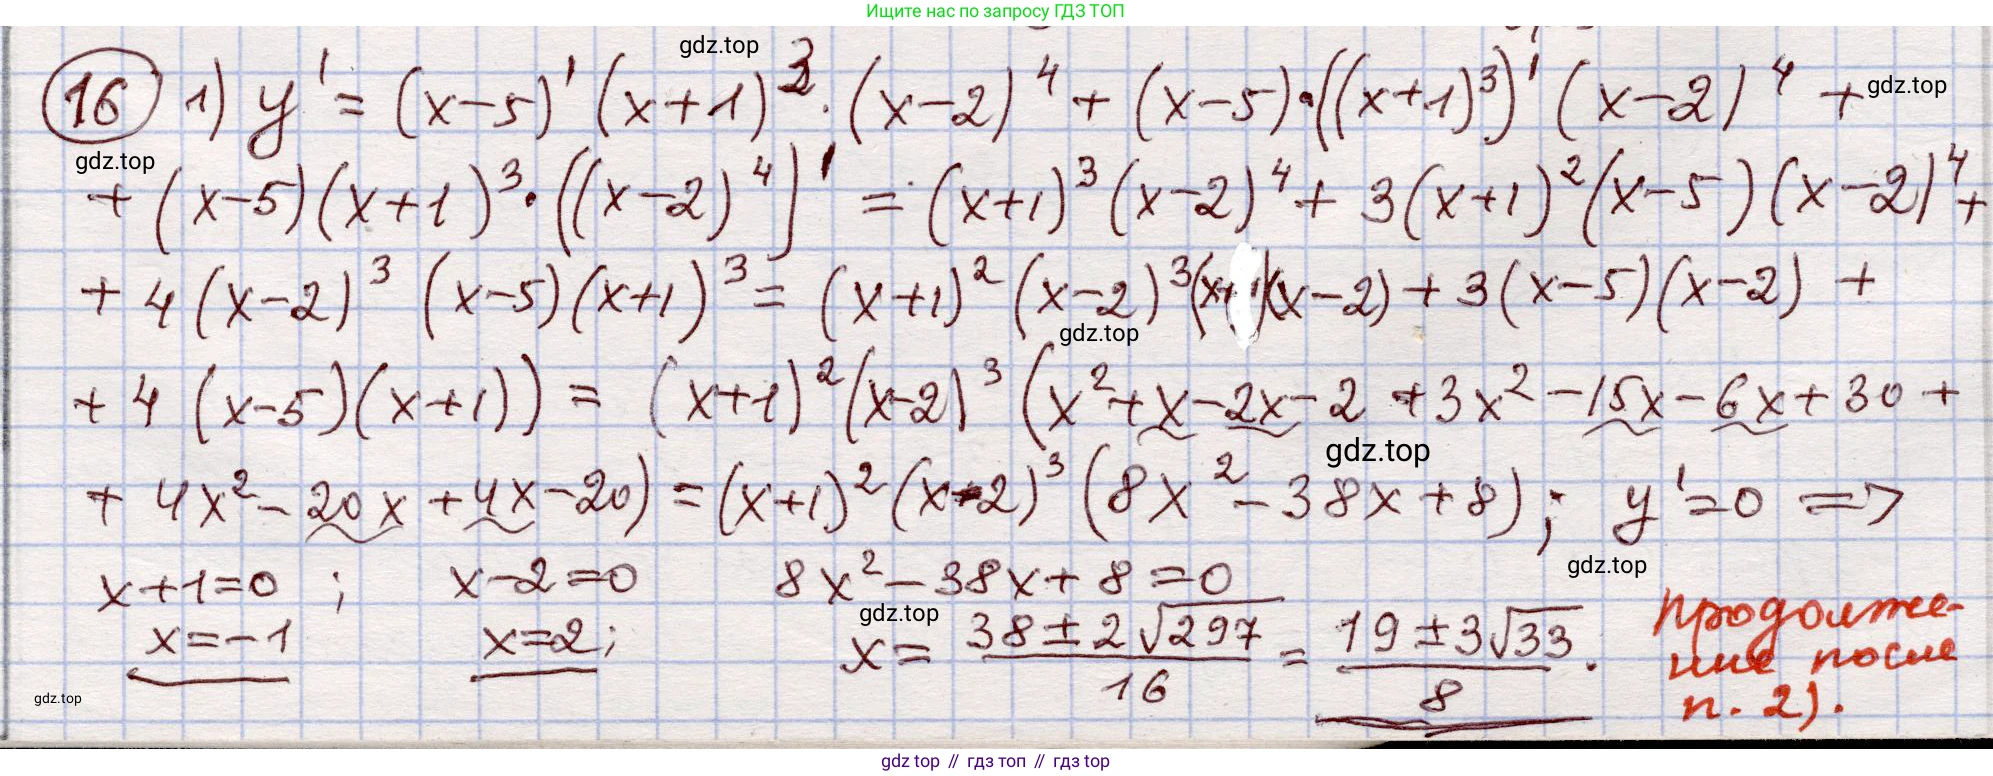 Ищите нас по запросу ГДЗ ТОП
gdz.top
16 1) y' = (x-5)' (x+1)³ · (x-2)⁴ + (x-5)·((x+1)³)' (x-2)⁴ + gdz.top
gdz.top
+ (x-5)(x+1)³·((x-2)⁴)' = (x+1)³(x-2)⁴ + 3(x+1)²(x-5)(x-2)⁴ +
+ 4(x-2)³ (x-5)(x+1)³ = (x+1)² (x-2)³((x+1)(x-2) + 3(x-5)(x-2) +
gdz.top
+ 4 (x-5)(x+1)) = (x+1)²(x-2)³ (x²+x-2x-2 +3x²-15x-6x+30 +
gdz.top
+ 4x²-20x+4x-20) = (x+1)²(x-2)³ (8x²-38x+8); y'=0 =>
gdz.top
x+1=0 ; x-2=0 8x²-38x+8=0
gdz.top
x=-1 x=2; x= (38±2√297)/16 = (19±3√33)/8 .
Продолже-
ние после
п. 2).
gdz.top
gdz top // гдз топ // gdz.top